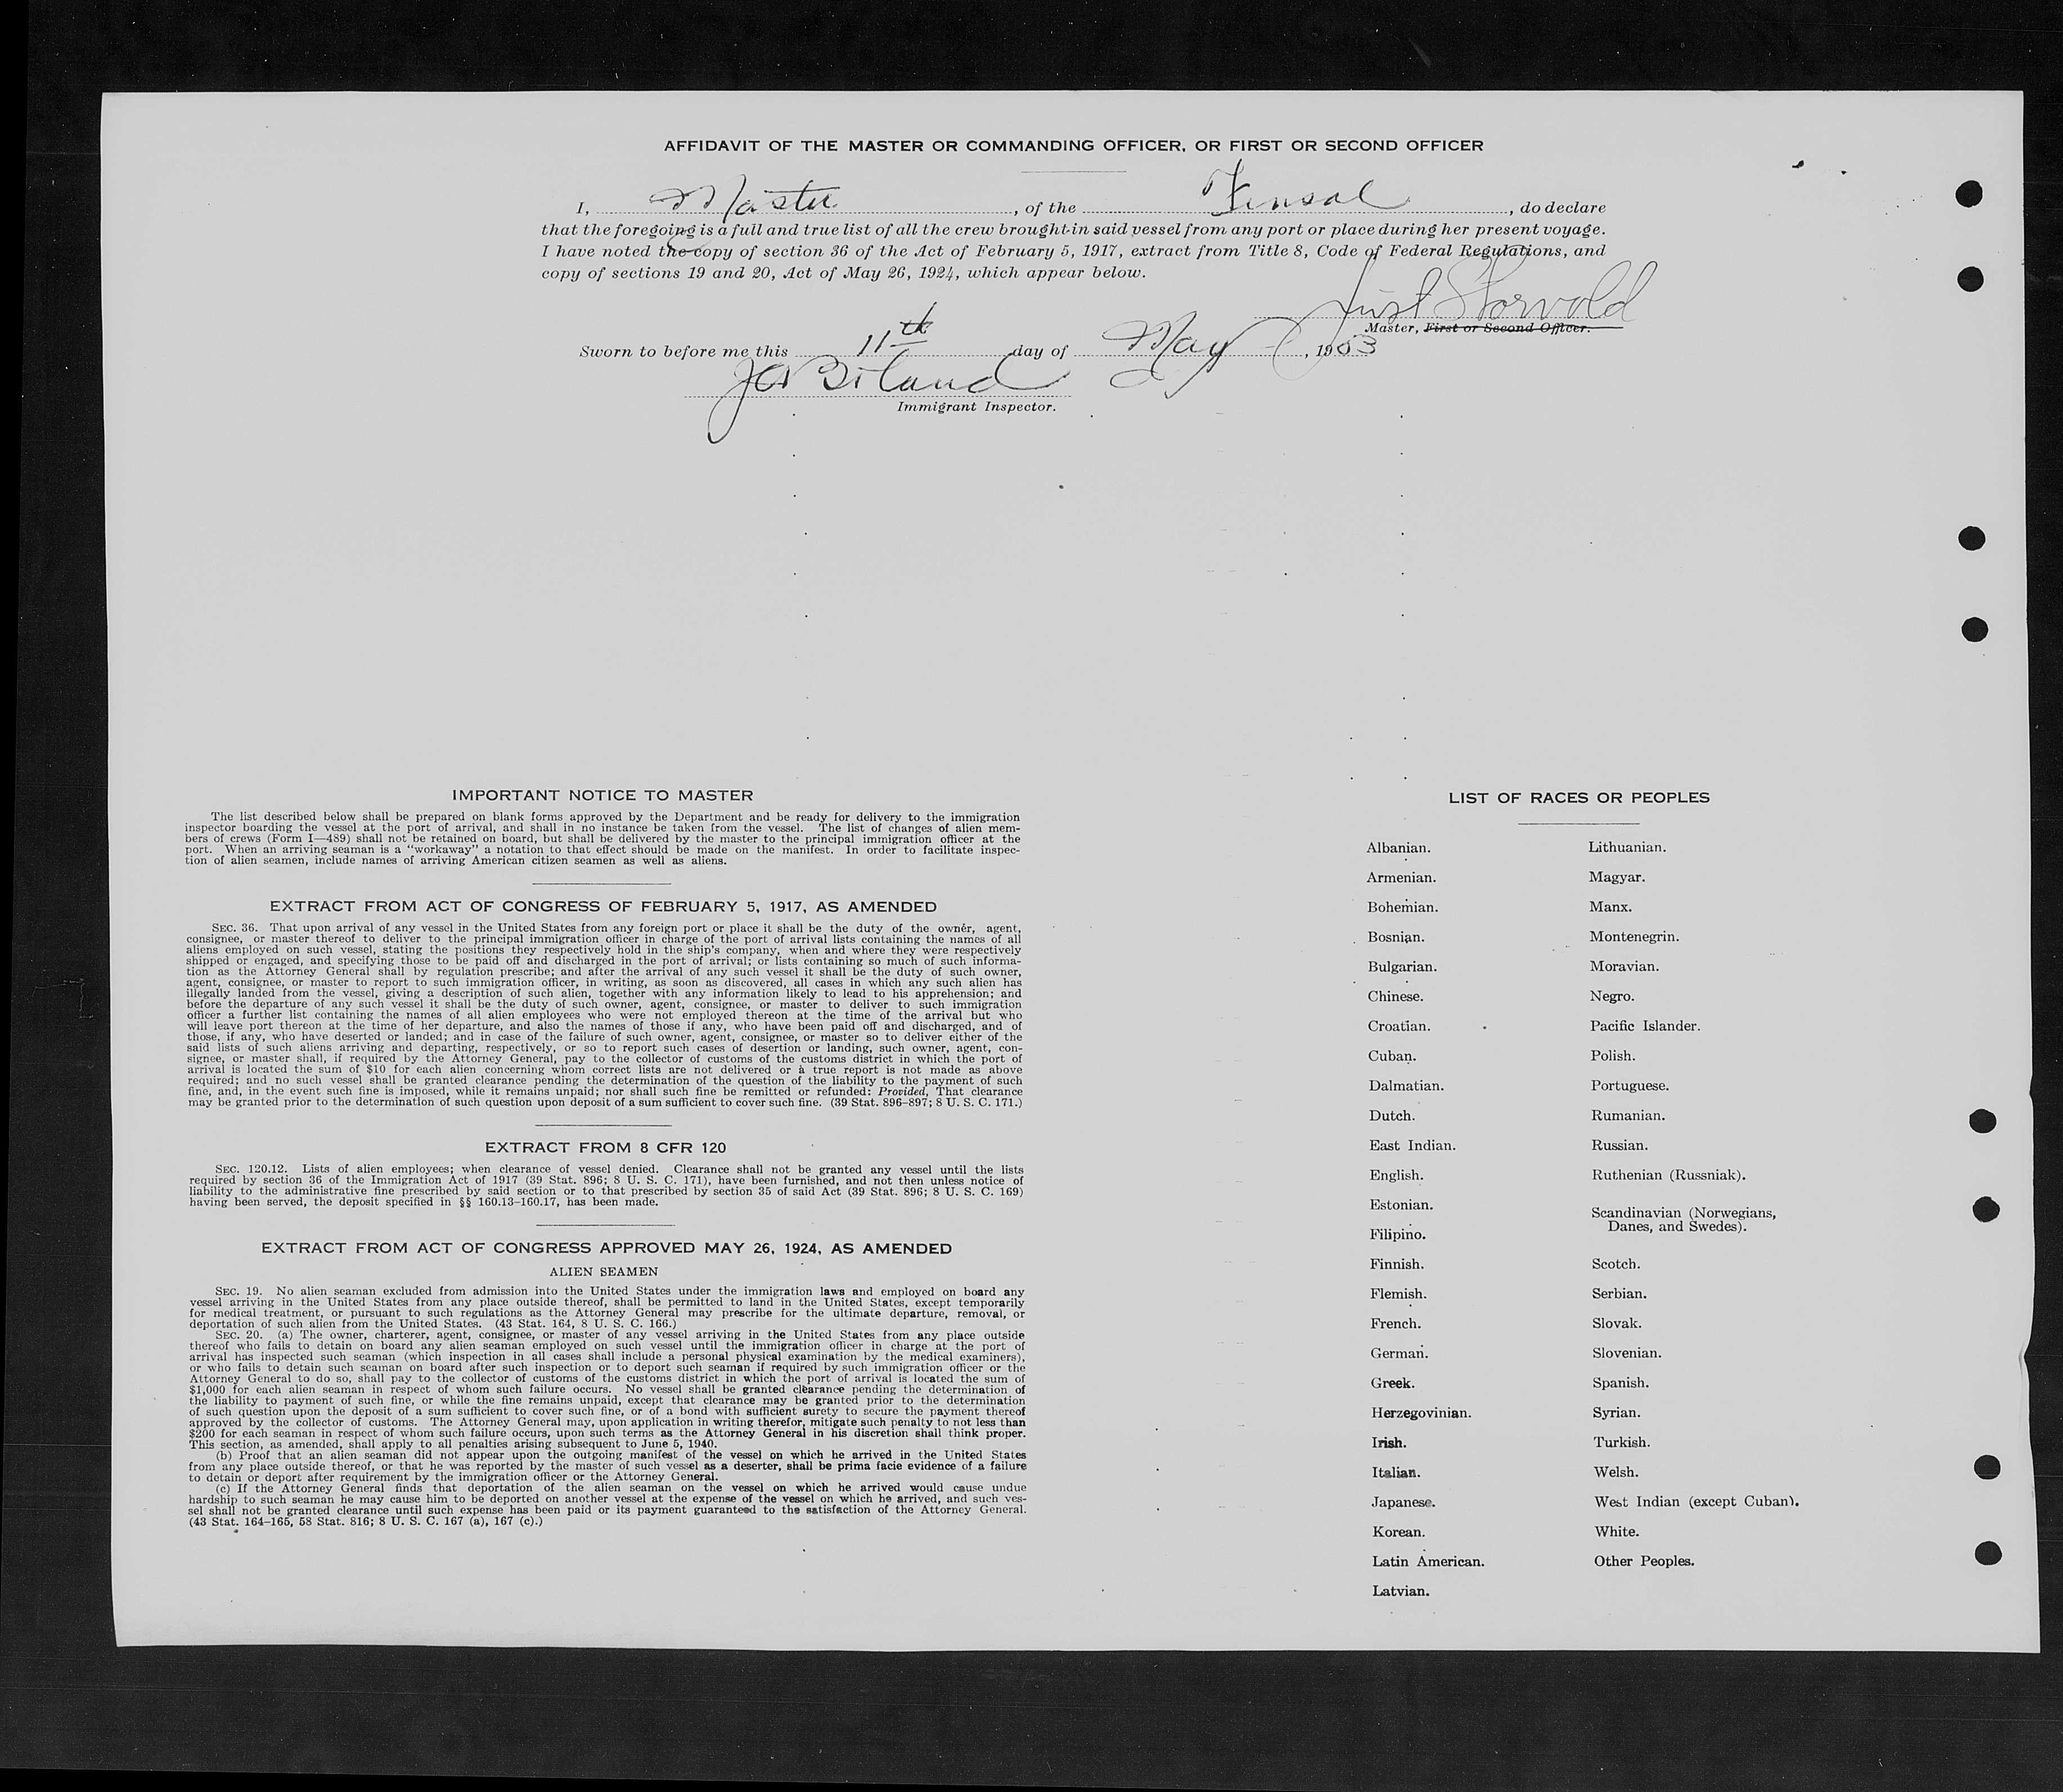 AFFIDAVIT OF THE MASTER OR COMMANDING OFFICER, OR FIRST OR SECOND OFFICER
I, Master, of the , do declare
that the foregoing is a full and true list of all the crew brought in said vessel from any port or place during her present voyage.
I have noted the copy of section 36 of the Act of February 5, 1917, extract from Title 8, Code of Federal Regulations, and
copy of sections 19 and 20, Act of May 26, 1924, which appear below.
Master, First or Second Officer.
Sworn to before me this 11th day of May, 1953
Immigrant Inspector.
IMPORTANT NOTICE TO MASTER
The list described below shall be prepared on blank forms approved by the Department and be ready for delivery to the immigration
inspector boarding the vessel at the port of arrival, and shall in no instance be taken from the vessel. The list of changes of alien mem-
bers of crews (Form I—489) shall not be retained on board, but shall be delivered by the master to the principal immigration officer at the
port. When an arriving seaman is a "workaway" a notation to that effect should be made on the manifest. In order to facilitate inspec-
tion of alien seamen, include names of arriving American citizen seamen as well as aliens.
EXTRACT FROM ACT OF CONGRESS OF FEBRUARY 5, 1917, AS AMENDED
SEC. 36. That upon arrival of any vessel in the United States from any foreign port or place it shall be the duty of the owner, agent,
consignee, or master thereof to deliver to the principal immigration officer in charge of the port of arrival lists containing the names of all
aliens employed on such vessel, stating the positions they respectively hold in the ship's company, when and where they were respectively
shipped or engaged, and specifying those to be paid off and discharged in the port of arrival; or lists containing so much of such informa-
tion as the Attorney General shall by regulation prescribe; and after the arrival of any such vessel it shall be the duty of such owner,
agent, consignee, or master to report to such immigration officer, in writing, as soon as discovered, all cases in which any such alien has
illegally landed from the vessel, giving a description of such alien, together with any information likely to lead to his apprehension; and
before the departure of any such vessel it shall be the duty of such owner, agent, consignee, or master to deliver to such immigration
officer a further list containing the names of all alien employees who were not employed thereon at the time of the arrival but who
will leave port thereon at the time of her departure, and also the names of those if any, who have been paid off and discharged, and of
those, if any, who have deserted or landed; and in case of the failure of such owner, agent, consignee, or master so to deliver either of the
said lists of such aliens arriving and departing, respectively, or so to report such cases of desertion or landing, such owner, agent, con-
signee, or master shall, if required by the Attorney General, pay to the collector of customs of the customs district in which the port of
arrival is located the sum of $10 for each alien concerning whom correct lists are not delivered or a true report is not made as above
required; and no such vessel shall be granted clearance pending the determination of the question of the liability to the payment of such
fine, and, in the event such fine is imposed, while it remains unpaid; nor shall such fine be remitted or refunded: Provided, That clearance
may be granted prior to the determination of such question upon deposit of a sum sufficient to cover such fine. (39 Stat. 896-897; 8 U. S. C. 171.)
EXTRACT FROM 8 CFR 120
SEC. 120.12. Lists of alien employees; when clearance of vessel denied. Clearance shall not be granted any vessel until the lists
required by section 36 of the Immigration Act of 1917 (39 Stat. 896; 8 U. S. C. 171), have been furnished, and not then unless notice of
liability to the administrative fine prescribed by said section or to that prescribed by section 35 of said Act (39 Stat. 896; 8 U. S. C. 169)
having been served, the deposit specified in §§ 160.13-160.17, has been made.
EXTRACT FROM ACT OF CONGRESS APPROVED MAY 26, 1924, AS AMENDED
ALIEN SEAMEN
SEC. 19. No alien seaman excluded from admission into the United States under the immigration laws and employed on board any
vessel arriving in the United States from any place outside thereof, shall be permitted to land in the United States, except temporarily
for medical treatment, or pursuant to such regulations as the Attorney General may prescribe for the ultimate departure, removal, or
deportation of such alien from the United States. (43 Stat. 164, 8 U. S. C. 166.)
SEC. 20. (a) The owner, charterer, agent, consignee, or master of any vessel arriving in the United States from any place outside
thereof who fails to detain on board any alien seaman employed on such vessel until the immigration officer in charge at the port of
arrival has inspected such seaman (which inspection in all cases shall include a personal physical examination by the medical examiners),
or who fails to detain such seaman on board after such inspection or to deport such seaman if required by such immigration officer or the
Attorney General to do so, shall pay to the collector of customs of the customs district in which the port of arrival is located the sum of
$1,000 for each alien seaman in respect of whom such failure occurs. No vessel shall be granted clearance pending the determination of
the liability to payment of such fine, or while the fine remains unpaid, except that clearance may be granted prior to the determination
of such question upon the deposit of a sum sufficient to cover such fine, or of a bond with sufficient surety to secure the payment thereof
approved by the collector of customs. The Attorney General may, upon application in writing therefor, mitigate such penalty to not less than
$200 for each seaman in respect of whom such failure occurs, upon such terms as the Attorney General in his discretion shall think proper.
This section, as amended, shall apply to all penalties arising subsequent to June 5, 1940.
(b) Proof that an alien seaman did not appear upon the outgoing manifest of the vessel on which he arrived in the United States
from any place outside thereof, or that he was reported by the master of such vessel as a deserter, shall be prima facie evidence of a failure
to detain or deport after requirement by the immigration officer or the Attorney General.
(c) If the Attorney General finds that deportation of the alien seaman on the vessel on which he arrived would cause undue
hardship to such seaman he may cause him to be deported on another vessel at the expense of the vessel on which he arrived, and such ves-
sel shall not be granted clearance until such expense has been paid or its payment guaranteed to the satisfaction of the Attorney General.
(43 Stat. 164-165, 58 Stat. 816; 8 U. S. C. 167 (a), 167 (c).)
LIST OF RACES OR PEOPLES
Albanian.
Armenian.
Bohemian.
Bosnian.
Bulgarian.
Chinese.
Croatian.
Cuban.
Dalmatian.
Dutch.
East Indian.
English.
Estonian.
Filipino.
Finnish.
Flemish.
French.
German.
Greek.
Herzegovinian.
Irish.
Italian.
Japanese.
Korean.
Latin American.
Latvian.
Lithuanian.
Magyar.
Manx.
Montenegrin.
Moravian.
Negro.
Pacific Islander.
Polish.
Portuguese.
Rumanian.
Russian.
Ruthenian (Russniak).
Scandinavian (Norwegians,
Danes, and Swedes).
Scotch.
Serbian.
Slovak.
Slovenian.
Spanish.
Syrian.
Turkish.
Welsh.
West Indian (except Cuban).
White.
Other Peoples.